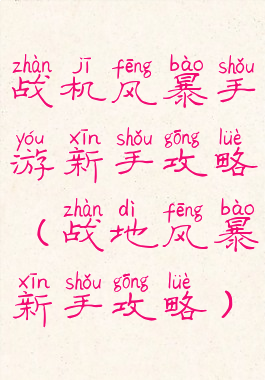 zhàn jī fēng bào shǒu
战机风暴手
yóu xīn shǒu gōng lüè
游新手攻略
zhàn dì fēng bào
（战地风暴
xīn shǒu gōng lüè
新手攻略）